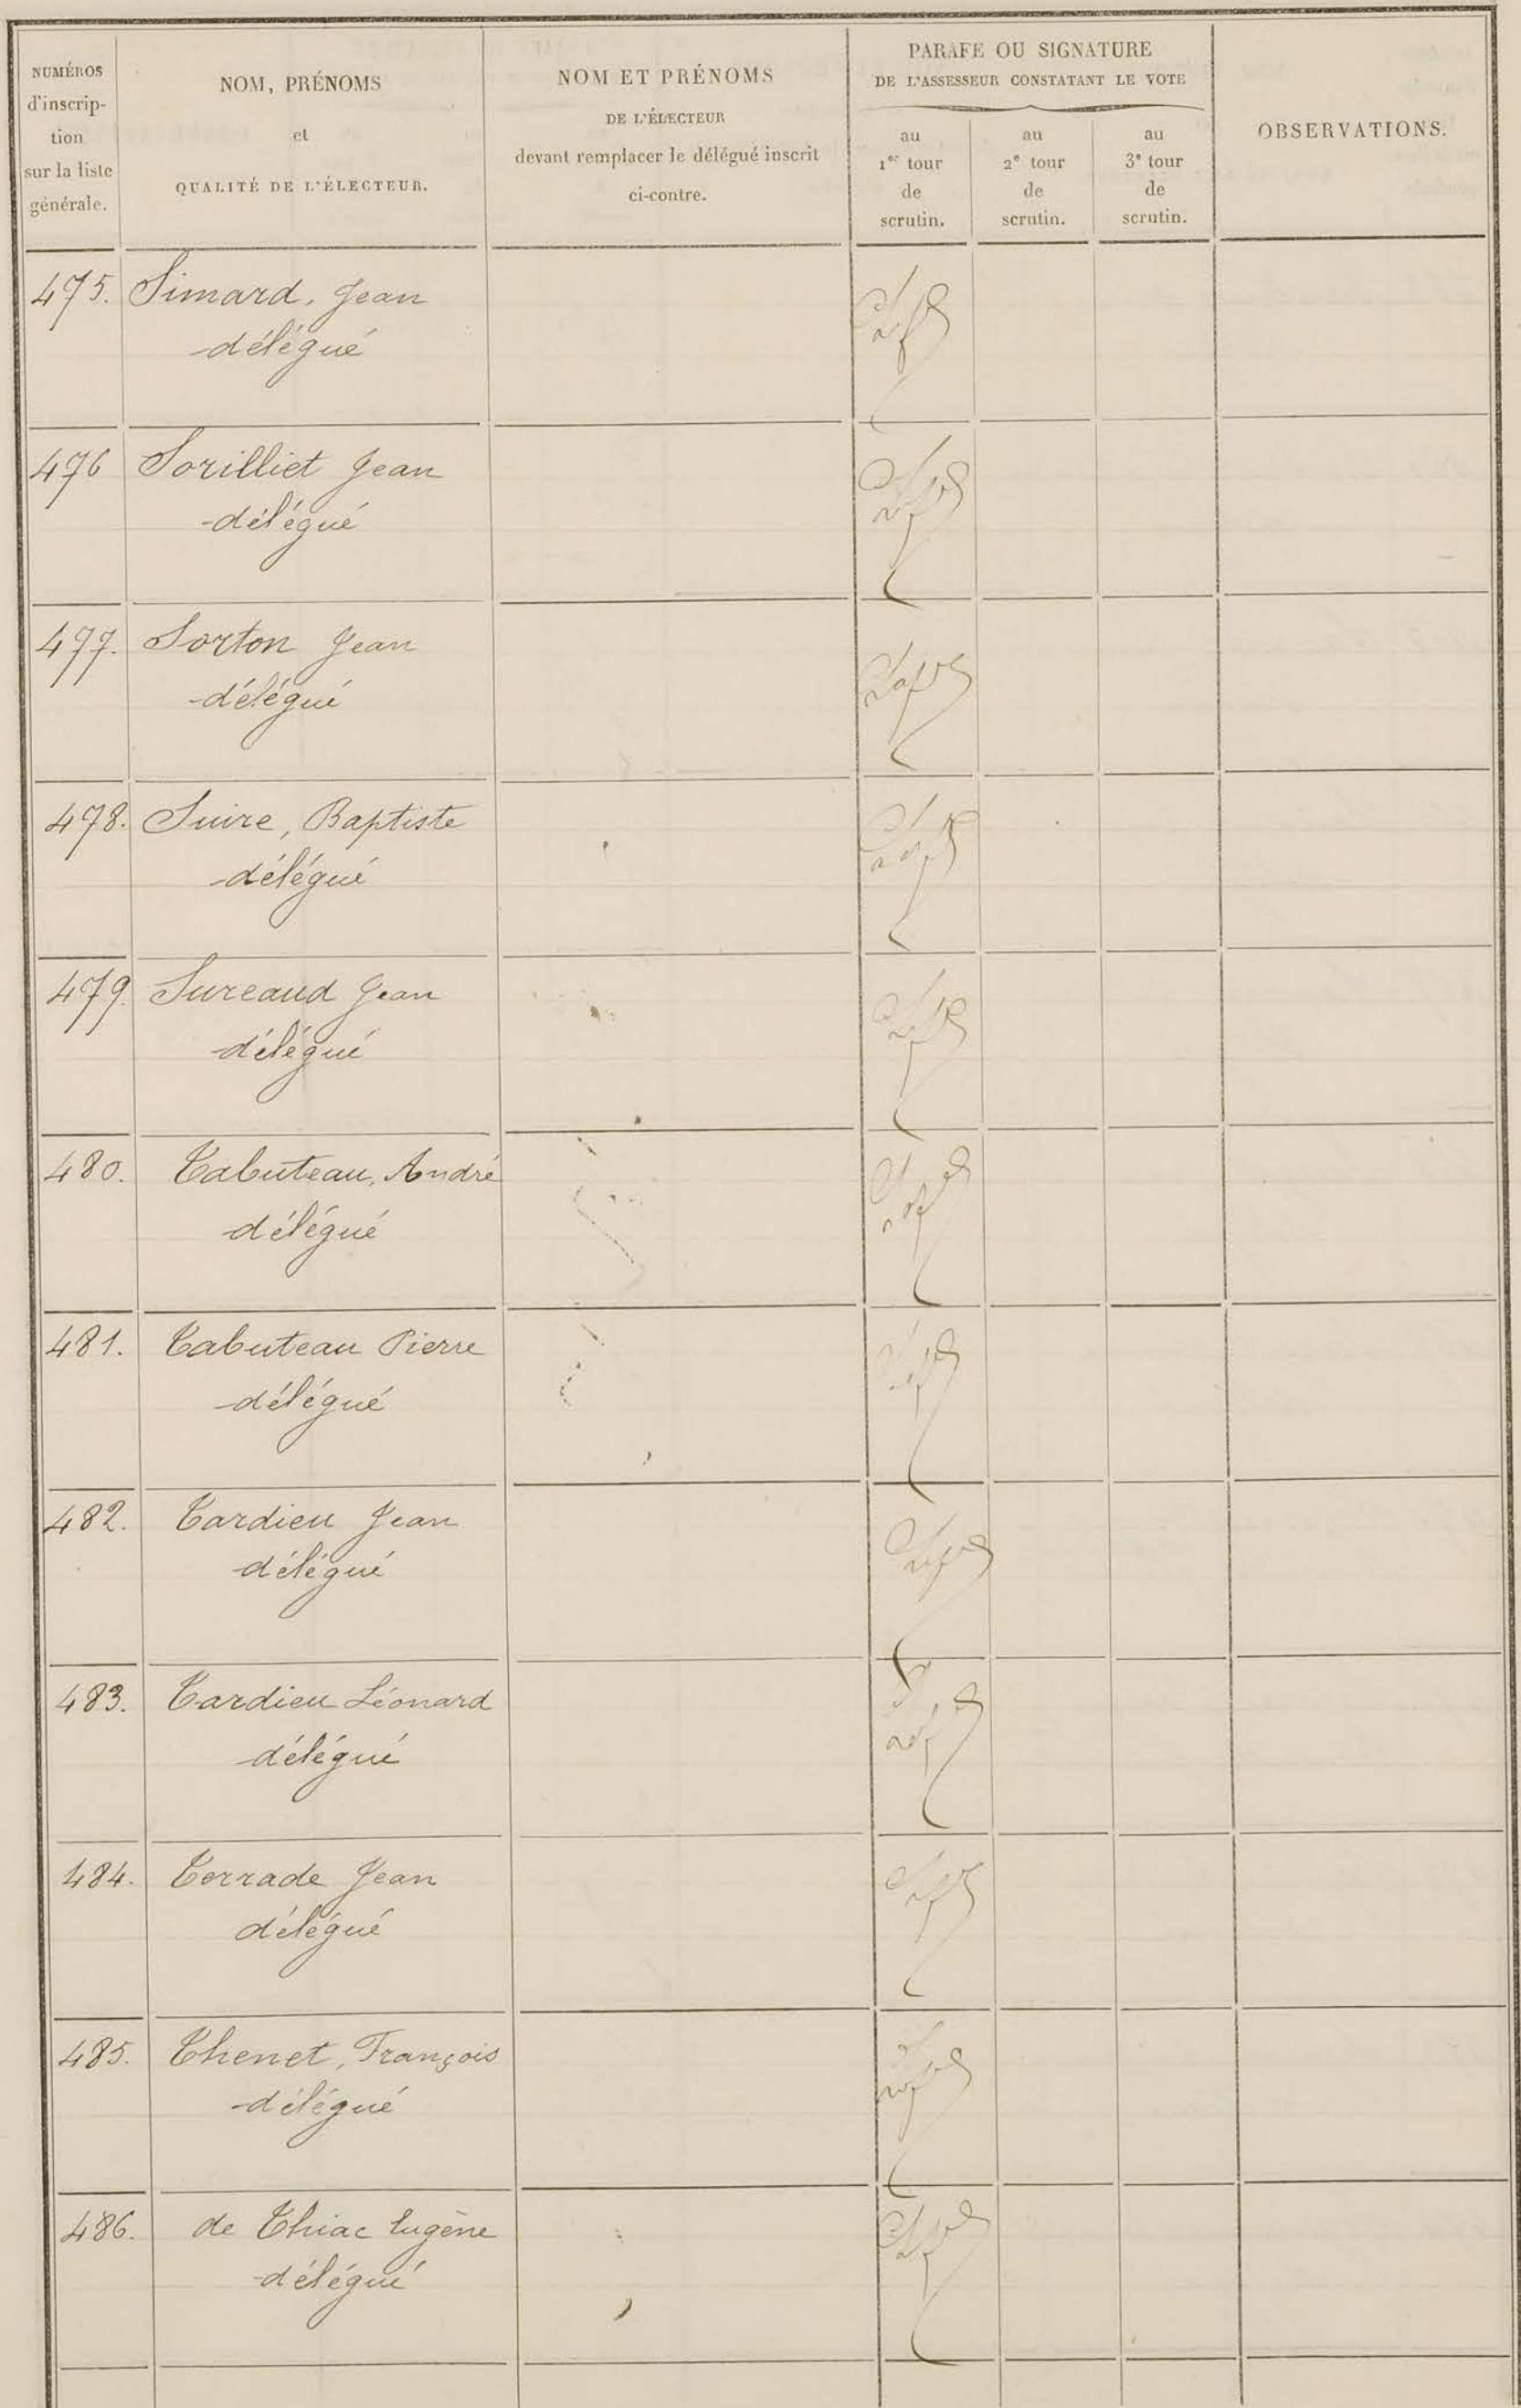 NUMÉROS
d'inscrip-
tion
sur la liste
générale.
NOM, PRÉNOMS
et
QUALITÉ DE L'ÉLECTEUR.
NOM ET PRÉNOMS
DE L'ÉLECTEUR
devant remplacer le délégué inscrit
ci-contre.
PARAFE OU SIGNATURE
DE L'ASSESSEUR CONSTATANT LE VOTE
au
1er tour
de
scrutin.
au
2e tour
de
scrutin.
au
3e tour
de
scrutin.
OBSERVATIONS.
475. Simard, Jean
délégué
476 Sorilliet Jean
délégué
477. Sorton Jean
délégué
478. Suire, Baptiste
délégué
479. Sureaud Jean
délégué
480. Tabuteau, André
délégué
481. Tabuteau Pierre
délégué
482. Tardieu Jean
délégué
483. Tardieu Léonard
délégué
484. Terrade Jean
délégué
485. Thenet, François
délégué
486. de Thiac Eugène
délégué